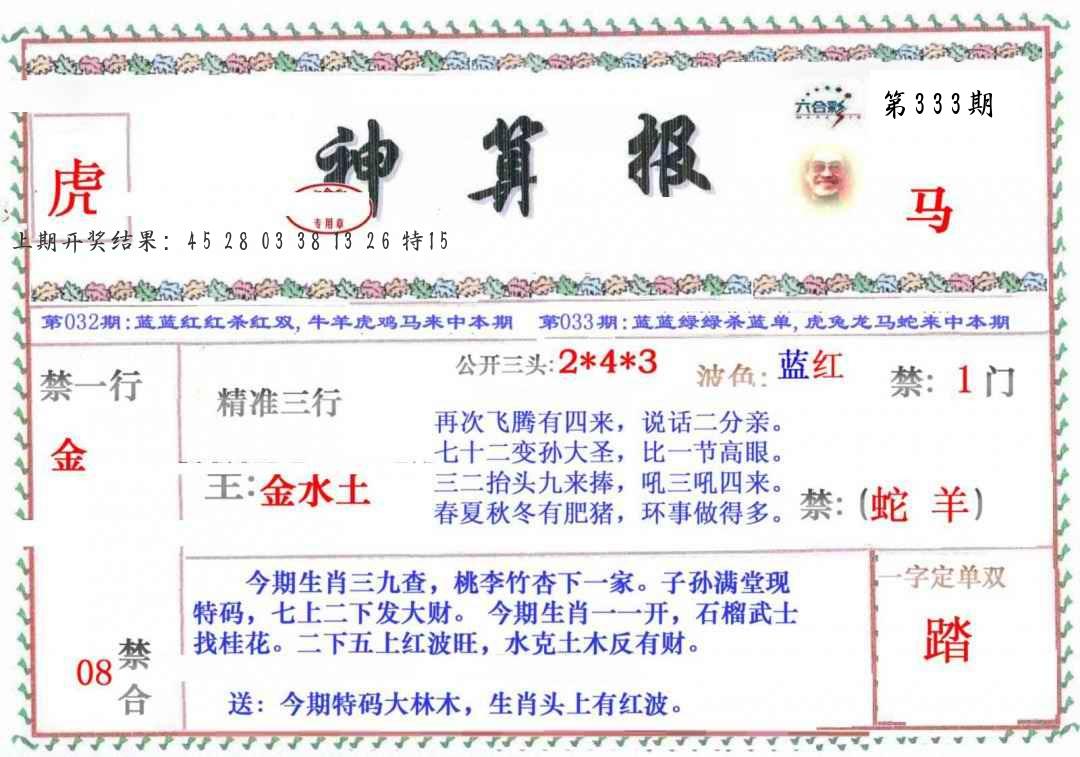 六合彩
第333期
神算报
虎
专用章
马
上期开奖结果: 45 28 03 38 13 26 特15
第032期:蓝蓝红红杀红双,牛羊虎鸡马来中本期 第033期:蓝蓝绿绿杀蓝单,虎兔龙马蛇来中本期
禁一行
金
精准三行
王:金水土
公开三头:2*4*3
波色:蓝红
禁: 1门
再次飞腾有四来，说话二分亲。
七十二变孙大圣，比一节高眼。
三二抬头九来捧，吼三吼四来。
春夏秋冬有肥猪，环事做得多。
禁:(蛇 羊)
今期生肖三九查，桃李竹杏下一家。子孙满堂现
特码，七上二下发大财。 今期生肖一一开，石榴武士
找桂花。二下五上红波旺，水克土木反有财。
送：今期特码大林木，生肖头上有红波。
08
禁合
一字定单双
踏